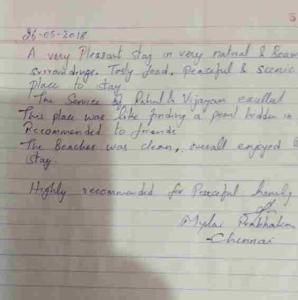 26-05-2018
A very Pleasant stay in very natural & Beau
surroundings. Tasty food, peaceful & scenic
place to stay
The Service by Rahul & Vijayan excellent
This place was like finding a pearl hidden in
Recommended to friends
The Beaches was clean, overall enjoyed
stay.
Highly recommended for Peaceful
Mylai Prabhakar
Chennai